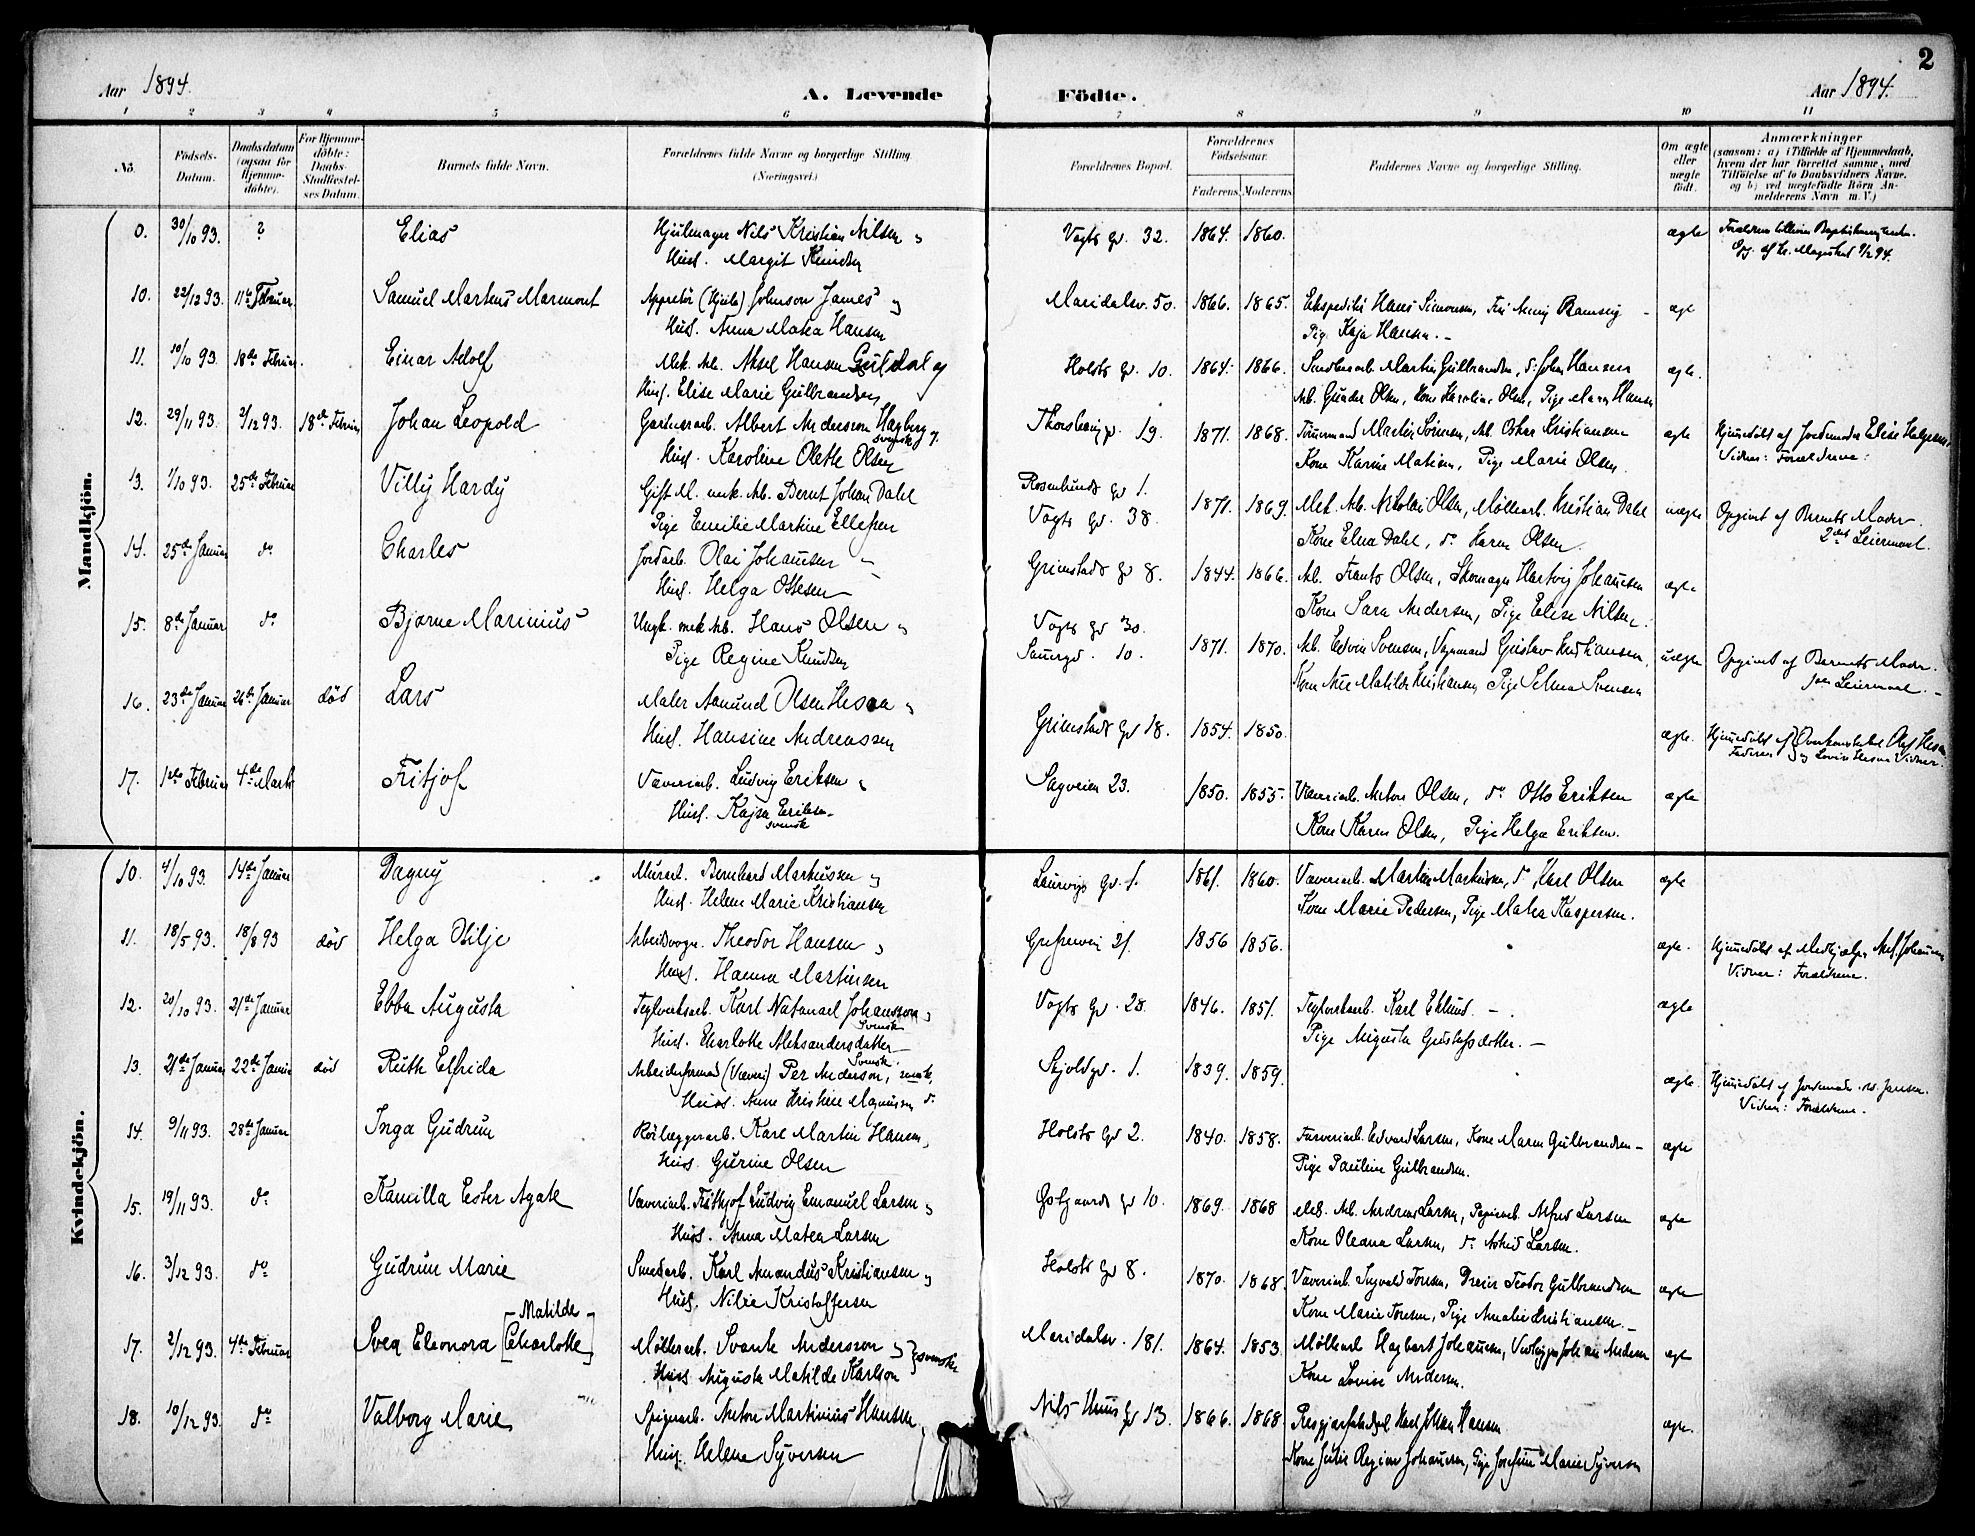 2
Aar 1894. A. Levende Födte. Aar 1894.
1 2 3 4 5 6 7 8 9 10 11
No. Födsels-Datum. Daabsdatum (ogsaa for Hjemmedöbte). For Hjemmedöbte: Daabs-Stadfæstelses Datum. Barnets fulde Navn. Forældrenes fulde Navne og borgerlige Stilling. (Næringsvei.) Forældrenes Bopæl. Forældrenes Födselsaar. Faderens. Moderens. Faddernes Navne og borgerlige Stilling. Om ægte eller uægte födt. Anmærkninger (saasom: a) i Tilfælde af Hjemmedaab, hvem der har forrettet samme, med Tilföielse af to Daabsvidners Navne, og b) ved uægtefödte Börn Anmelderens Navn m. V.)
Mandkjön.
0. 30/10 93. ? Elias Hjulmager Nils Kristian Nilsen Vogts gd. 32. 1864. 1860. ægte
Hust. Margit Knudsen
10. 22/12 93. 11te Februar Samuel Markus Marmont Appretör (Hjula) Johnson James og Maridalsv. 50. 1866. 1865. Ekspeditör Hans Simonsen, Ramsey ægte
Hust. Anna Matea Hansen Pige Kaja Hansen.
11. 10/10 93. 18de Februar. Einar Adolf Mek. Arb. Aksel Hansen Guldal og Holsts gd. 10. 1864. 1866. Martin Gulbrandsen, do Johan Hansen ægte.
Hust. Elise Marie Gulbrandsen Arb. Gunder Olsen, Kone Karoline Olsen, Pige Maren Hansen
12. 29/11 93. 2/12 93. 18de Februar Johan Leopold Gartnerarb. Albert Andersson Hagberg svensk og Thorsberggd. 19. 1871. 1868. Tömmermand Martin Sörensen, Arb. Oskar Kristiansen ægte Hjemmedöbt af Jordemoder Elise Helgesen.
Hust. Karoline Olette Olsen Kone Karine Matisen, Pige Marie Olsen. Vidner: Forældrene.
13. 1/10 93. 25de Februar Villy Hardy Gift M. mek. Arb. Bernt Johan Dahl Rosenlunds gd 1. 1871. 1869. Mek. Arb. Nikolai Olsen, Möllerarb. Kristian Dahl uægte Opgivet af Barnets Moder.
Pige Emilie Martine Ellefsen Vogts gd. 38. Kone Elna Dahl, do Karen Olsen. 2det Leiermaal.
14. 25de Januar do Charles Jordarb. Olai Johansen Grimstads gd 8. 1844. 1866. Arb. Frants Olsen, Skomager Hartvig Johansen ægte
Hust. Helga Ottesen Kone Sara Andersen, Pige Elise Nilsen.
15. 8de Januar do Bjarne Marinius Ungk. mek. Arb. Hans Olsen Vogts gd 30. 1871. 1870. Arb. Edvin Svensen, Vognmand Gustav Kristiansen, uægte Opgivet af Barnets Moder.
Pige Regine Knudsen 10. Kone Matilde Kristiansen, Pige Selma Svensen 1ste Leiermaal.
16. 23de Januar 26de Januar död Lars Maler Aamund Olsen Hesaa Grimstads gd 18. 1854. 1850. ægte. Hjemmedöbt af Overkonstabel Olaf Hesaa
Hust. Hansine Andreassen Faderen og Lovise Hesaa Vidner.
17. 1ste Februar 4de Marts Fritjof Væveriarb. Ludvig Eriksen Sagveien 23. 1850. 1855. Væveriarb. Anton Olsen, do Otto Eriksen ægte
Hust. Kajsa Eriksen svensk Kone Karen Olsen, Pige Helga Eriksen.
Kvindekjön.
10. 4/10 93. 14de Januar Dagny Murarb. Bernhard Markussen og Laurvigs gd. 1. 1861. 1860. Væveriarb. Martin Markussen, do Karl Olsen ægte
Hust. Helene Marie Kristiansen Kone Marie Pedersen, Pige Matea Kaspersen.
11. 18/5 93. 18/8 93 död Helga Otilje Theodor Hansen Grefsenvei 21. 1856 1856. ægte. Hjemmedöbt af Medhjælper Johansen
Hust. Hanna Martinsen Vidner: Forældrene.
12. 20/10 93. 21de Januar Ebba Augusta Teglverksarb. Karl Natanael Johansson svensk Vogts gd. 28. 1846. 1851. Teglverksarb. Karl Eklund. ægte
Hust. Charlotte Aleksandersdatter Pige Augusta Gustafsdotter.
13. 21de Januar 22de Januar död Ruth Elfrida Arbeidsformand (Væveri) Per Anderson, svensk Skjoldgd. 1. 1839. 1859. ægte. Hjemmedöbt af Jordemoder Jansen.
Hust. Anna Kristine Magnussen do Vidner: Forældrene.
14. 9/11 93. 28de Januar Inga Gudrun Rörlæggerarb. Karl Martin Hansen Holsts gd 2. 1840. 1858. Farveriarb. Edvard Larsen, Kone Maren Gulbrandsen ægte
Hust. Gurine Olsen Pige Pauline Gulbrandsen.
15. 19/11 93. do Kamilla Ester Agate Væveriarb. Fridtjof Ludvig Emanuel Larsen gd 10. 1869. 1868 Mek. Arb. Andreas Larsen, Papirarb. Alfred Larsen ægte
Hust. Anna Matea Larsen Kone Oleana Larsen, do Astrid Larsen.
16. 3/12 93. do Gudrun Marie Smedarb. Karl Amandus Kristiansen Holsts gd 8. 1870. 1868. Væveriarb. Sigvald Torsen, Dreier Teodor Gulbrandsen ægte
Hust. Nilia Kristoffersen Kone Marie Torsen, Pige Amalie Kristiansen.
17. 2/12 93. 4de Februar Svea Eleonora [Matilde Charlotte] Möllerarb. Svante Andersson og svenske Maridalsv. 181. 1864. 1853. Möllearb. Hagbart Johansen, Johan Andersen ægte
Hust. Augusta Matilde Karlson Kone Lovise Andersen.
18. 10/12 93. do Valborg Marie Spigerarb. Anton Martinius Hansen Nils Huus gd 13. 1866. 1868. Karl Johan Hansen ægte.
Hust. Helene Syversen Kone Julie Regine Johansen, Pige Josefine Marie Syversen